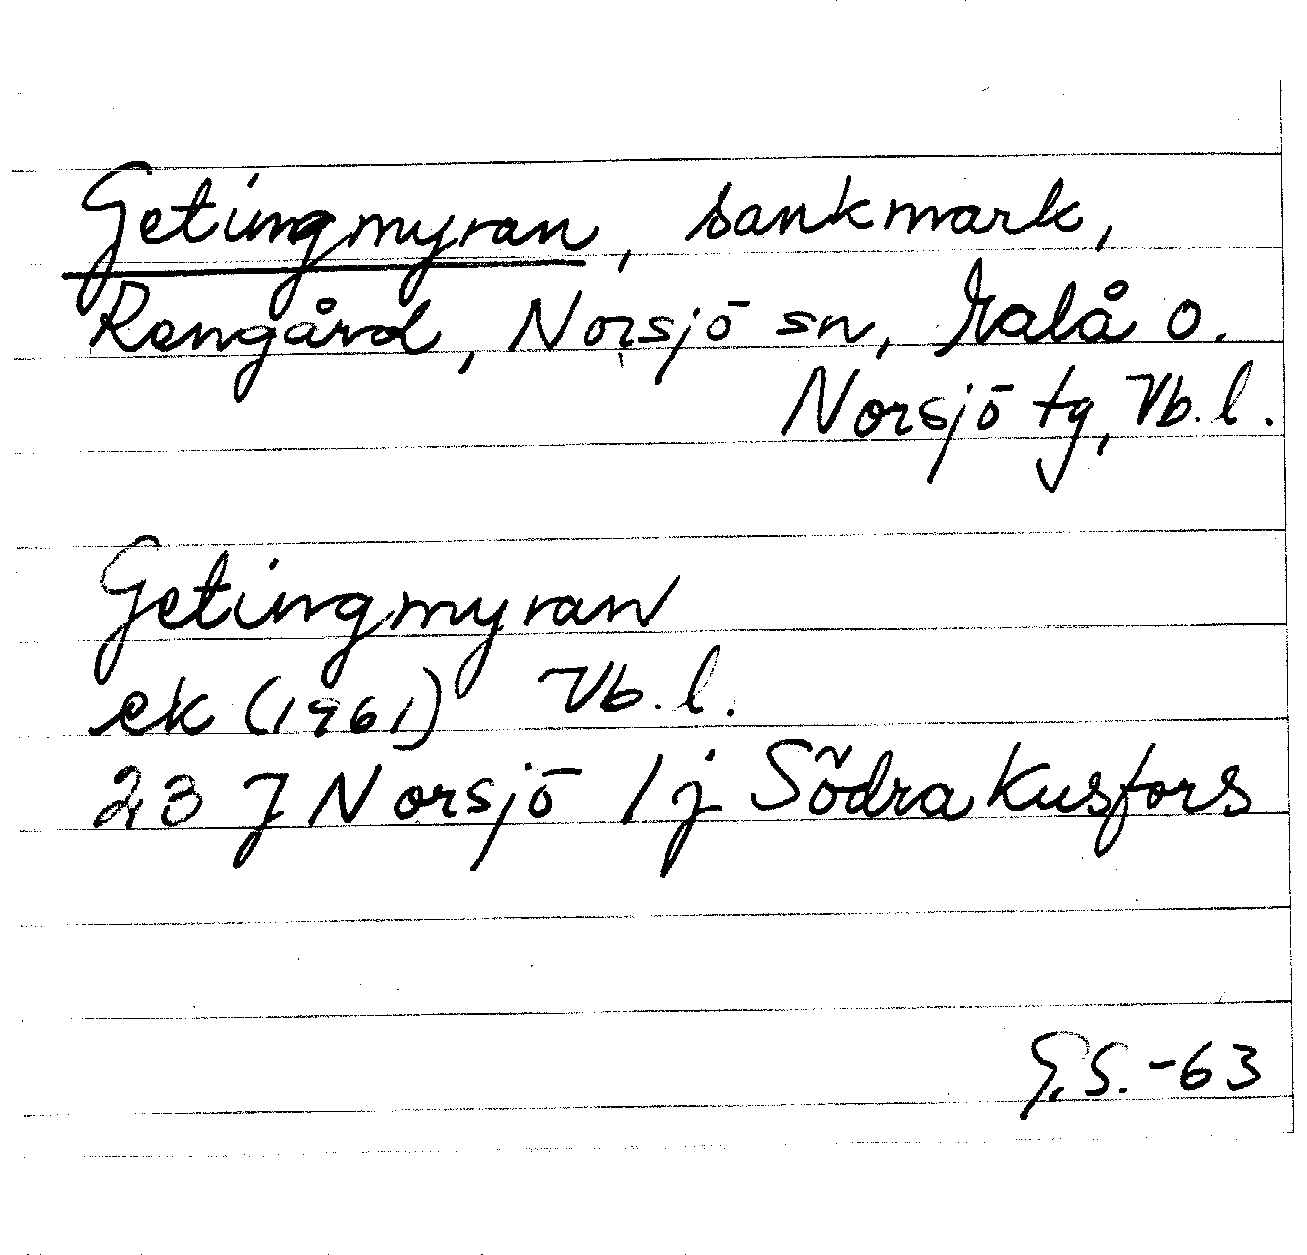 Getingmyran, sankmark,
Rengård, Norsjö sn, Malå o.
Norsjö tg, Vb.l.
Getingmyran
ek (1961) Vb.l.
23 J Norsjö 1j Södra Kusfors
G.S. -63